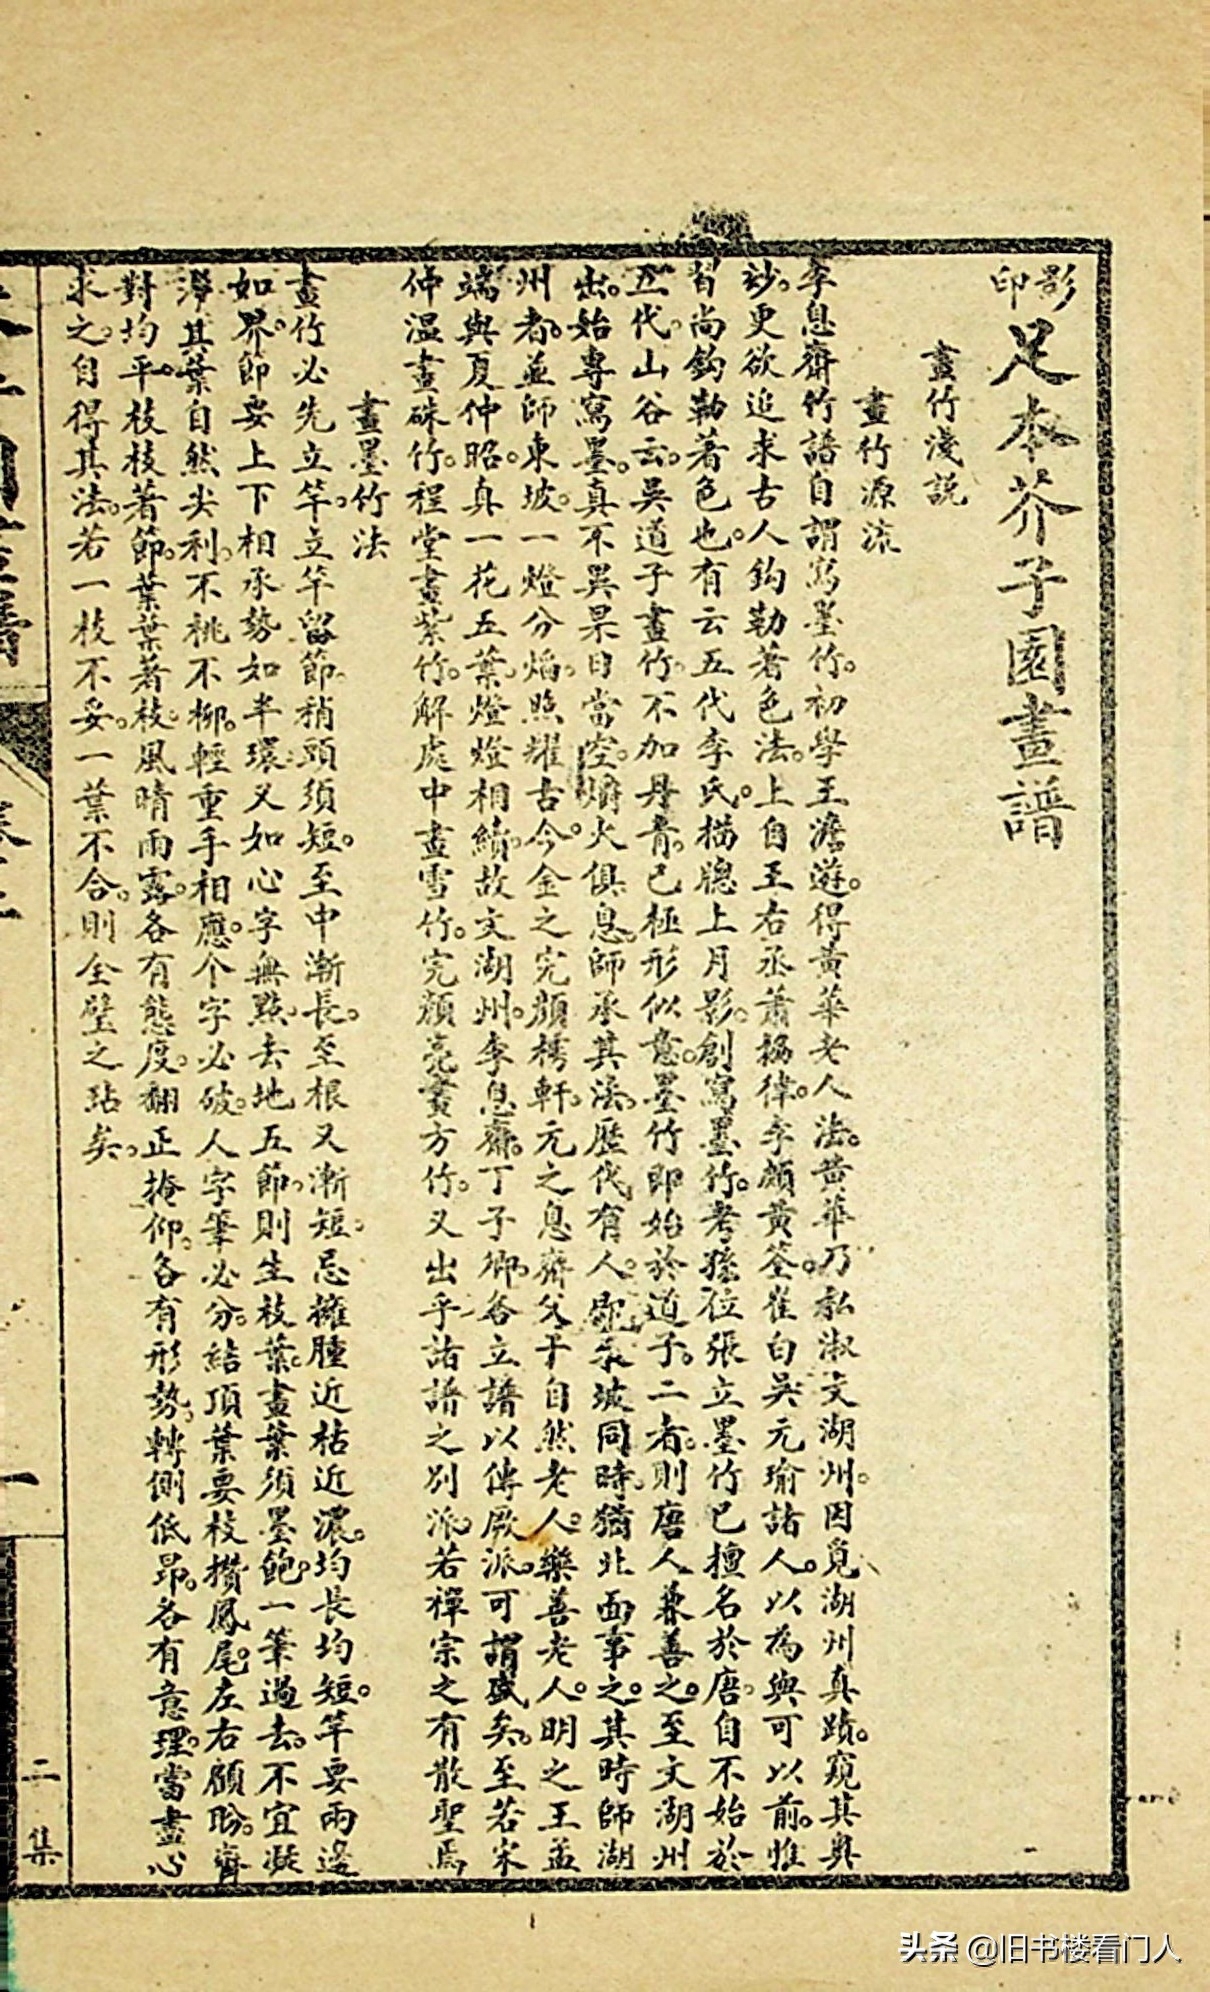 影印足本芥子園畫譜
畫竹淺説
畫竹源流
李息齋竹譜自謂寫墨竹。初學王澹遊。得黃華老人法。黃華乃私淑文湖州。因覓湖州真蹟。窺其奥
玅。更欲追求古人鈎勒著色法。上自王右丞蕭協律。李頗黃荃。崔白吳元瑜諸人。以為與可以前。惟
皆尚鈎勒著色也。有云五代李氏。描牕上月影。創寫墨竹。考孫位張立墨竹已擅名於唐。自不始於
五代。山谷云。吳道子畫竹。不加丹青。已極形似。意墨竹即始於道子。二者則唐人兼善之。至文湖州
出。始專寫墨。真不異杲日當空。爝火俱息。師承其法。歷代有人。即東坡同時。猶北面事之。其時師湖
州者。並師東坡。一燈分焰。照耀古今。金之完顏樗軒。元之息齋父子自然老人。樂善老人。明之王孟
端與夏仲昭。真一花五葉。燈燈相續。故文湖州。李息齋。丁子卿。各立譜以傳厥派。可謂盛矣。至若宋
仲温畫硃竹。程堂畫紫竹。解處中畫雪竹。完顏亮畫方竹。又出乎諸譜之别派。若禪宗之有散聖焉
畫墨竹法
畫竹必先立竿。立竿留節。稍頭須短。至中漸長。至根又漸短。忌擁腫近枯近濃。均長均短。竿要兩邊
如界。節要上下相承。勢如半環。又如心字無點。去地五節。則生枝葉。畫葉須墨飽。一筆過去。不宜凝
滯。其葉自然尖利。不桃不柳。輕重手相應。个字必破。人字筆必分。結頂葉要枝攢鳳尾。左右顧盼。齊
對均平。枝枝著節。葉葉著枝。風晴雨露。各有態度。翻正掩仰。各有形勢。轉側低昂。各有意理。當盡心
求之。自得其法。若一枝不妥。一葉不合。則全璧之玷矣。
一
二集
头条 @旧书楼看门人